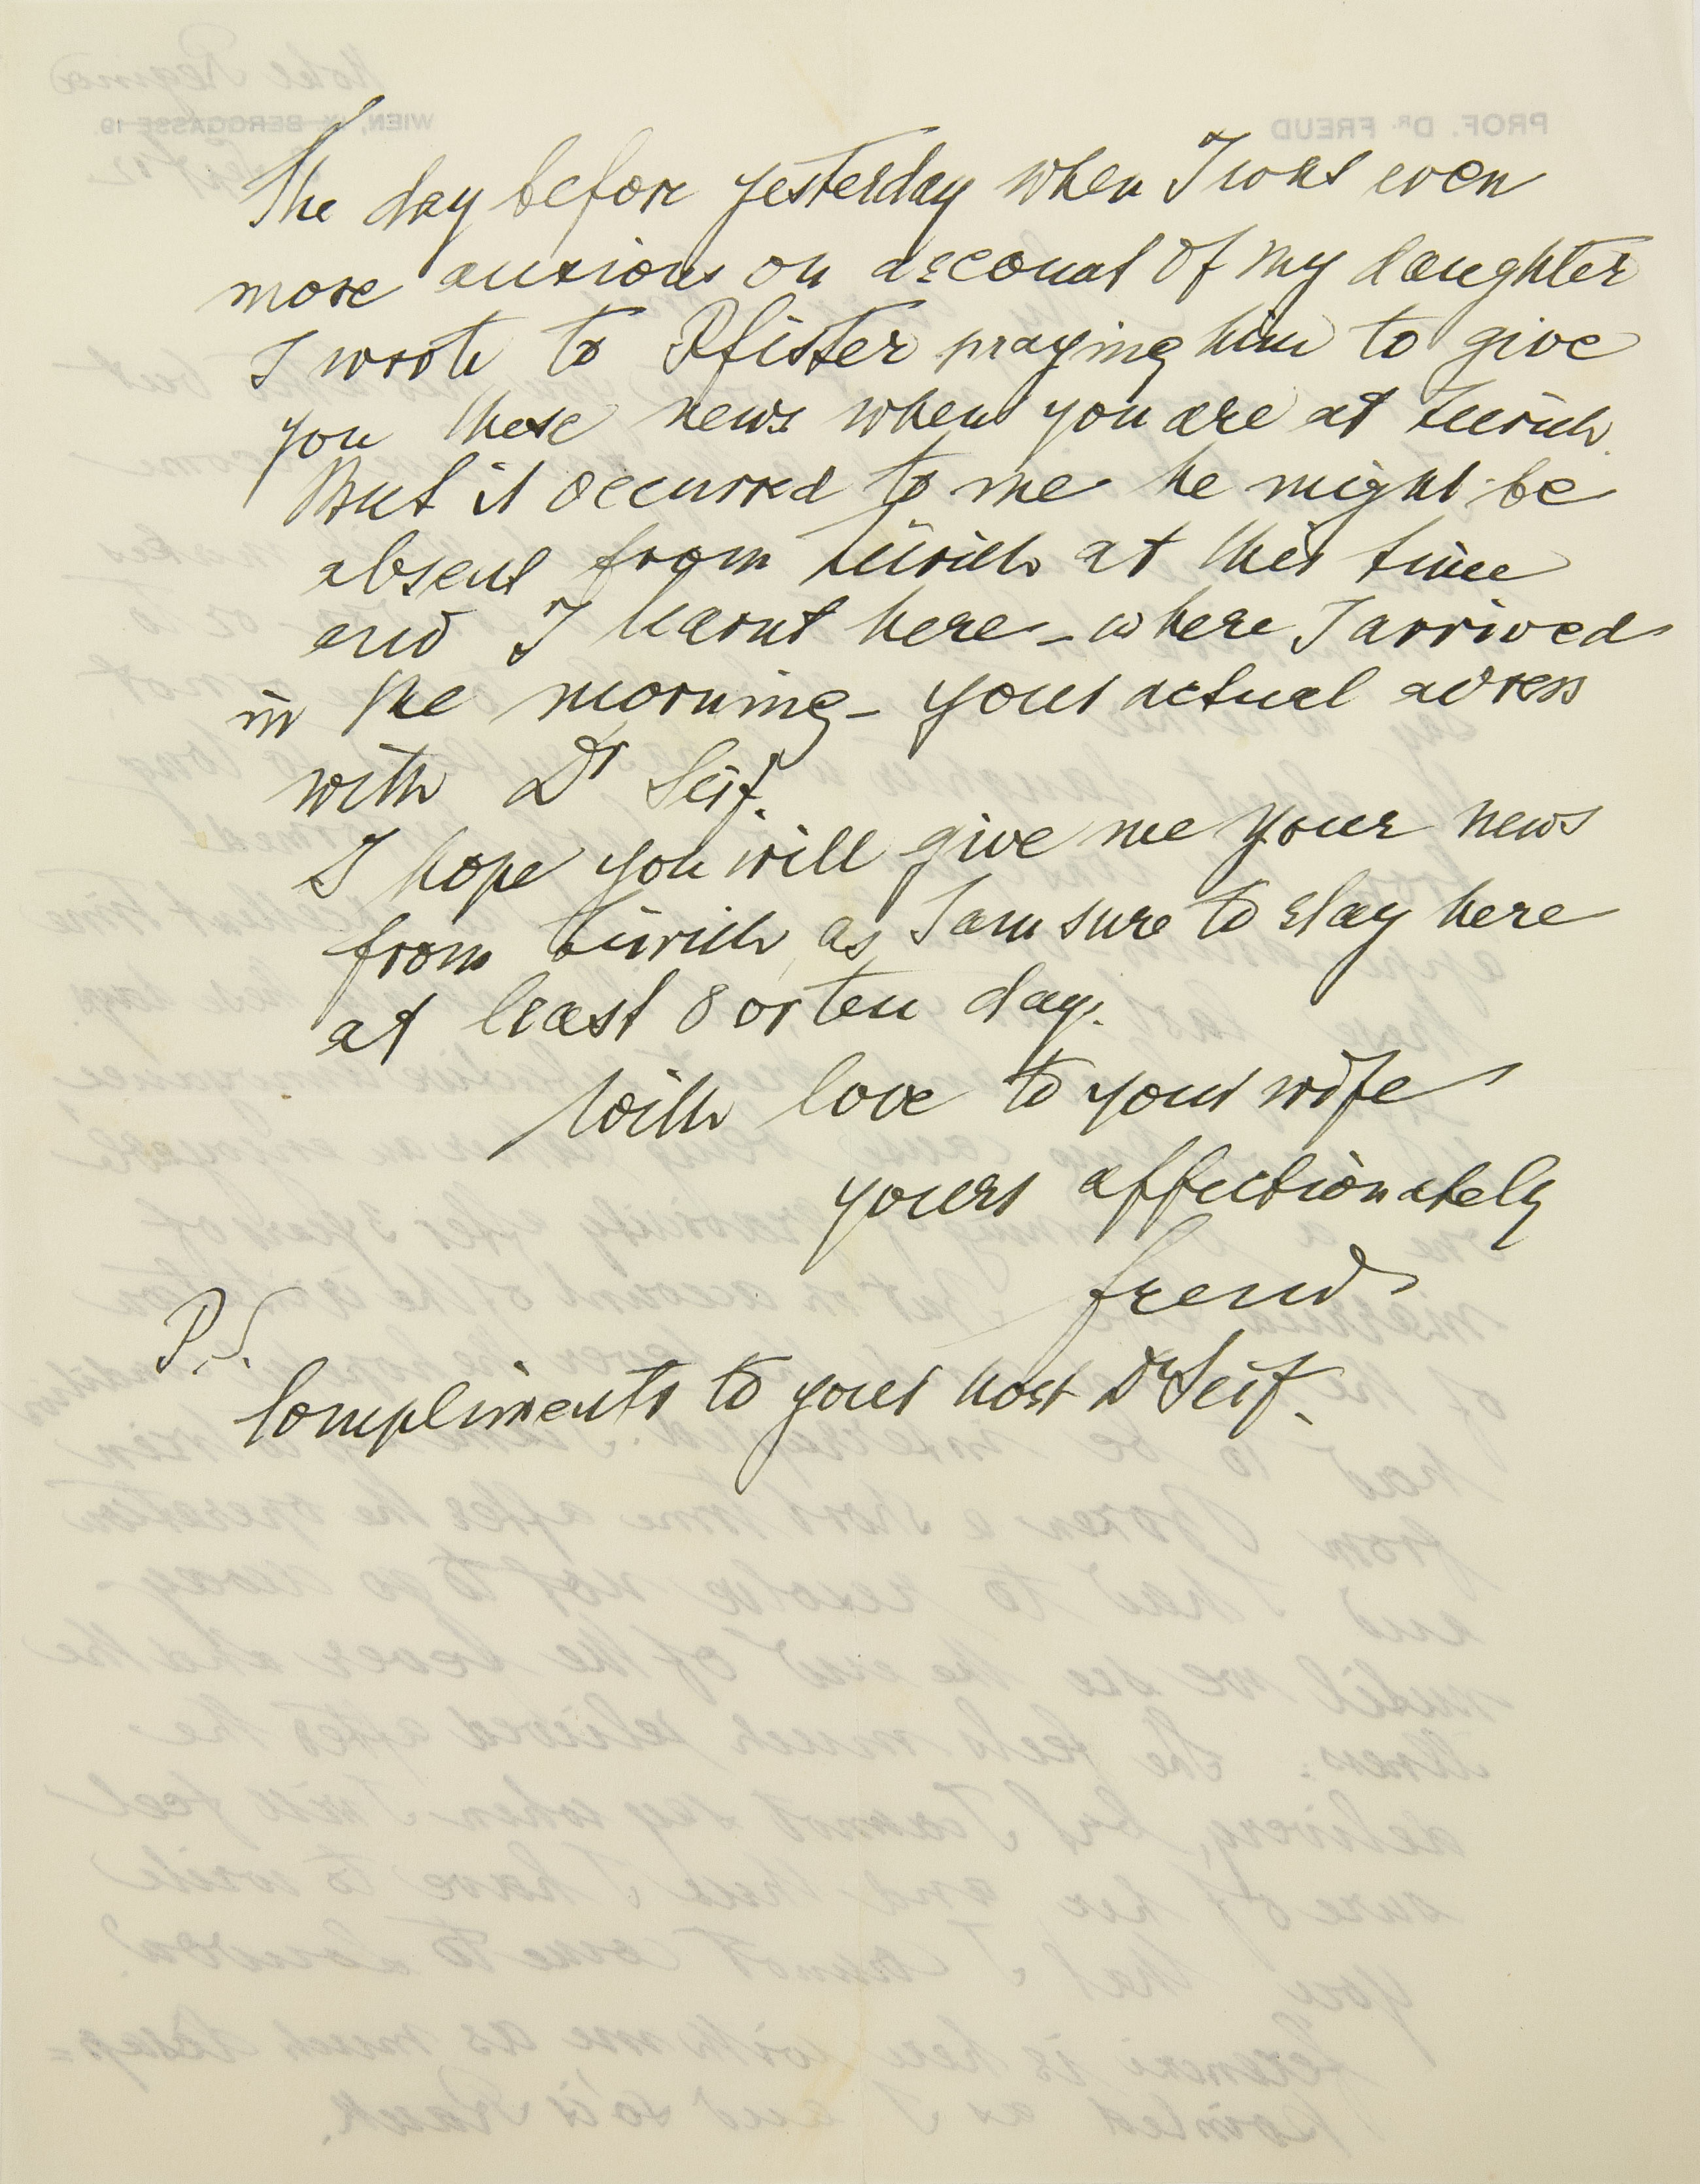 The day before yesterday when I was even
more anxious on account of my daughter
I wrote to Pfister praying him to give
you these news when you are at Zürich.
But it occurred to me he might be
absent from Zürich at this time
and I learnt here – where I arrived
in the morning – your actual adress
with Dr Seif.
I hope you will give me your news
from Zürich, as I am sure to stay here
at least 8 or ten days.
With love to your wife
yours affectionately
Freud
P.S.
Compliments to your host Dr Seif.